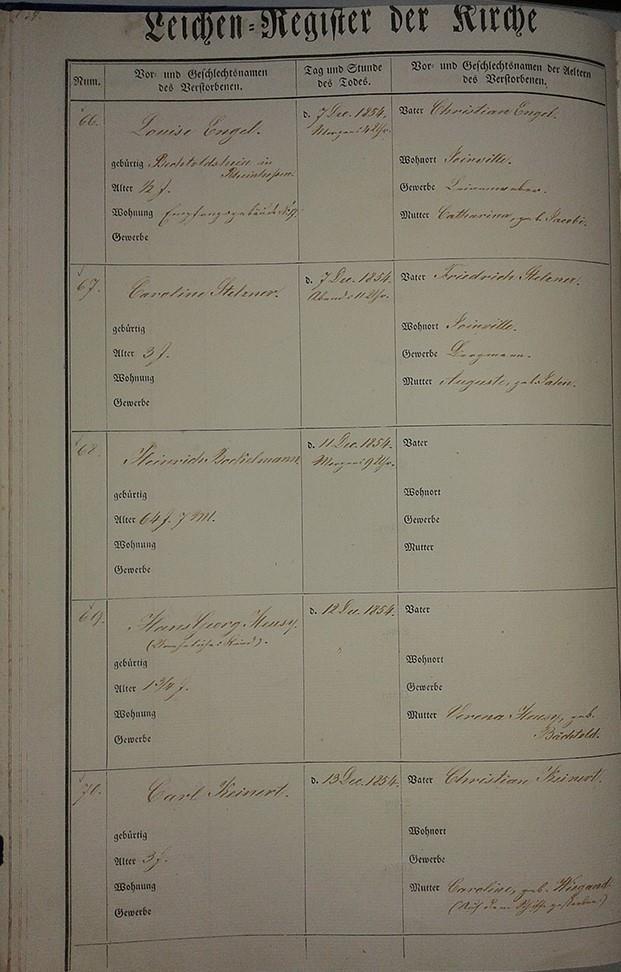 Leichen-Register der Kirche
Num.
Vor- und Geschlechtsnamen
des Verstorbenen.
Tag und Stunde
des Todes.
Vor- und Geschlechtsnamen der Aeltern
des Verstorbenen.
66.
Louise Engel.
gebürtig in
Rheinhessen.
Alter ½ J.
Wohnung
Gewerbe
d. 7 Dec. 1854.
Morgens 4 Uhr.
Vater Christian Engel.
Wohnort Joinville.
Gewerbe Leineweber.
Mutter Catharina, geb. Jacobi.
67.
Caroline Stelzner.
gebürtig
Alter 3 J.
Wohnung
Gewerbe
d. 7 Dec. 1854.
Abends 11 Uhr.
Vater Friedrich Stelzner.
Wohnort Joinville.
Gewerbe Bergmann.
Mutter Auguste, geb. Jahn.
68.
Heinrich Bockelmann
gebürtig
Alter 64 J. 7 M.
Wohnung
Gewerbe
d. 11 Dec. 1854.
Morgens 9 Uhr.
Vater
Wohnort
Gewerbe
Mutter
69.
Hans Georg Heusy.
(Uneheliches Kind).
gebürtig
Alter 1¾ J.
Wohnung
Gewerbe
d. 12 Dec. 1854.
Vater
Wohnort
Gewerbe
Mutter Verena Heusy, geb.
Bächtold.
70.
Carl Keinert.
gebürtig
Alter 3 J.
Wohnung
Gewerbe
d. 13 Dec. 1854.
Vater Christian Keinert.
Wohnort
Gewerbe
Mutter Caroline, geb. Wiegand.
(Auf dem Schiffe gestorben.)